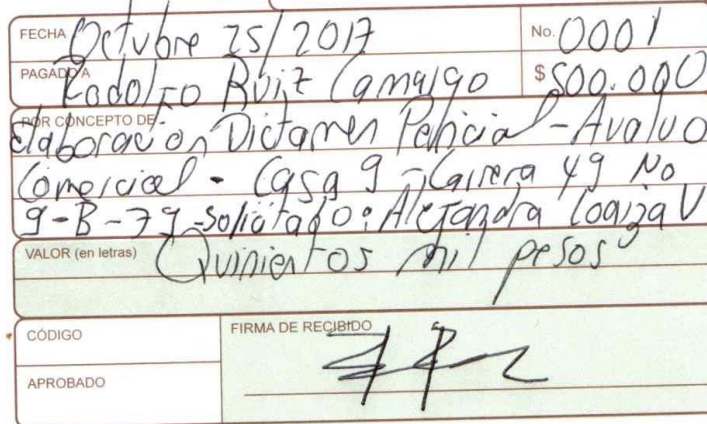 FECHA Octubre 25/2017 No. 0001
PAGADO A Rodolfo Ruiz Camargo $500.000
POR CONCEPTO DE:
Elaboración Dictamen Pericial - Avaluo
Comercial - Casa 9 - Carrera 49 No
9-B-79 solicitado: Alejandra Loaiza V
VALOR (en letras) Quinientos mil pesos
CÓDIGO
FIRMA DE RECIBIDO
APROBADO